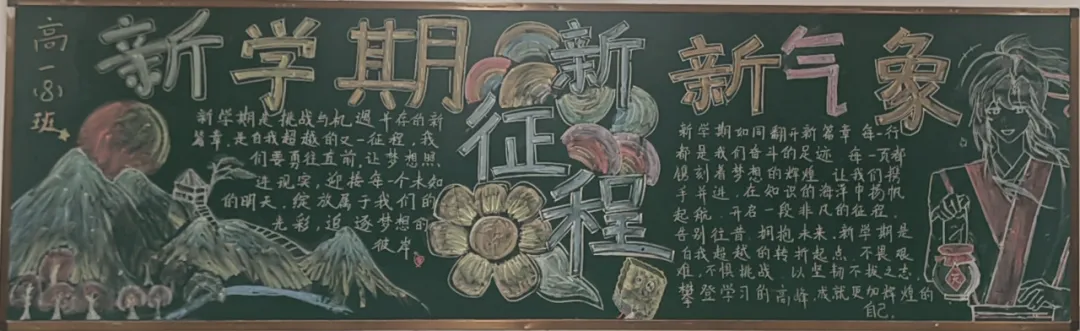 高一8班
新学期
新征程
新气象
新学期是挑战与机遇并存的新
篇章,是自我超越的又一征程,我
们要勇往直前,让梦想照
进现实,迎接每一个未知
的明天,绽放属于我们的
光彩,追逐梦想的
彼岸
新学期如同翻开新篇章 每一行
都是我们奋斗的足迹 每一页都
镌刻着梦想的辉煌 让我们携
手并进,在知识的海洋中扬帆
起航,开启一段非凡的征程,
告别往昔 拥抱未来,新学期是
自我超越的转折起点,不畏艰
难,不惧挑战,以坚韧不拔之志,
攀登学习的高峰,成就更加辉煌的
自己。